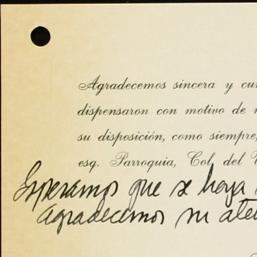 Agradecemos sincera y
dispensaron con motivo de
su disposición, como siempre,
esq. Parroquia, Col. del
Esperamos que se haya
agradecemos su